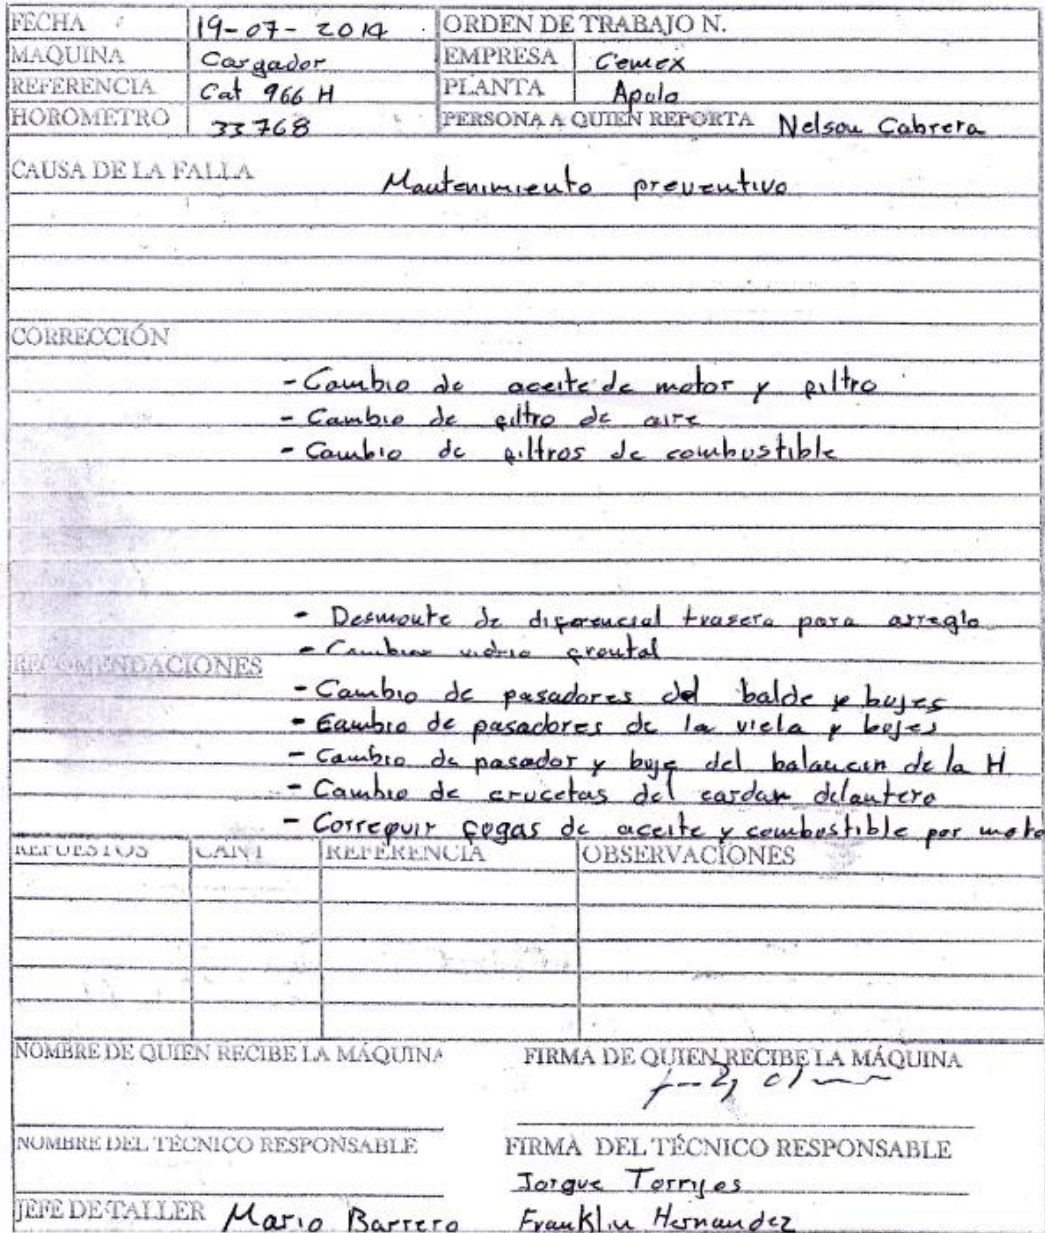 FECHA 19-07-2014 ORDEN DE TRABAJO N.
MAQUINA Cargador EMPRESA Cemex
REFERENCIA Cat 966 H PLANTA Apulo
HOROMETRO 33768 PERSONA A QUIEN REPORTA Nelson Cabrera
CAUSA DE LA FALLA Mantenimiento preventivo
CORRECCIÓN
- Cambio de aceite de motor y filtro
- Cambio de filtro de aire
- Cambio de filtros de combustible
- Desmonte de diferencial trasera para arreglo
- Cambiar vidrio frontal
RECOMENDACIONES
- Cambio de pasadores del balde y bujes
- Cambio de pasadores de la viela y bujes
- Cambio de pasador y buje del balancin de la H
- Cambio de crucetas del cardan delantero
- Correguir fugas de aceite y combustible por moto
REPUESTOS CANT REFERENCIA OBSERVACIONES
NOMBRE DE QUIEN RECIBE LA MÁQUINA FIRMA DE QUIEN RECIBE LA MÁQUINA
NOMBRE DEL TÉCNICO RESPONSABLE FIRMA DEL TÉCNICO RESPONSABLE
Jorgue Torryes
JEFE DE TALLER Mario Barrero Franklin Hernandez